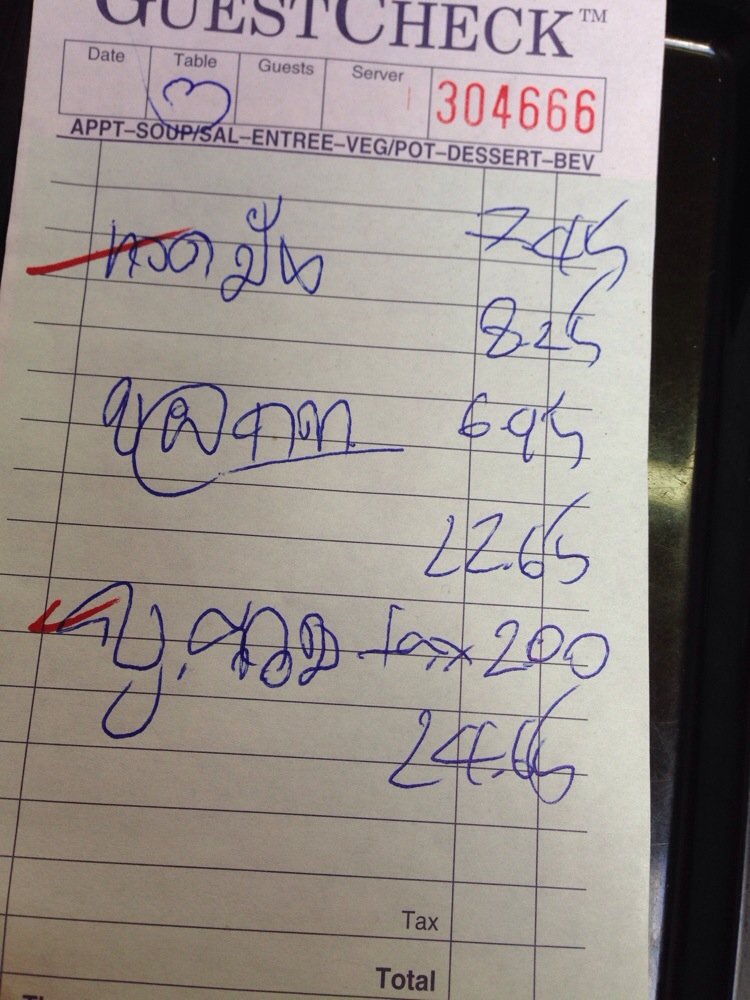 GUESTCHECK™
Date Table Guests Server 304666
APPT–SOUP/SAL–ENTREE–VEG/POT–DESSERT–BEV
ทอดมัน 745
825
695
22.65
tax 200
24.65
Tax
Total